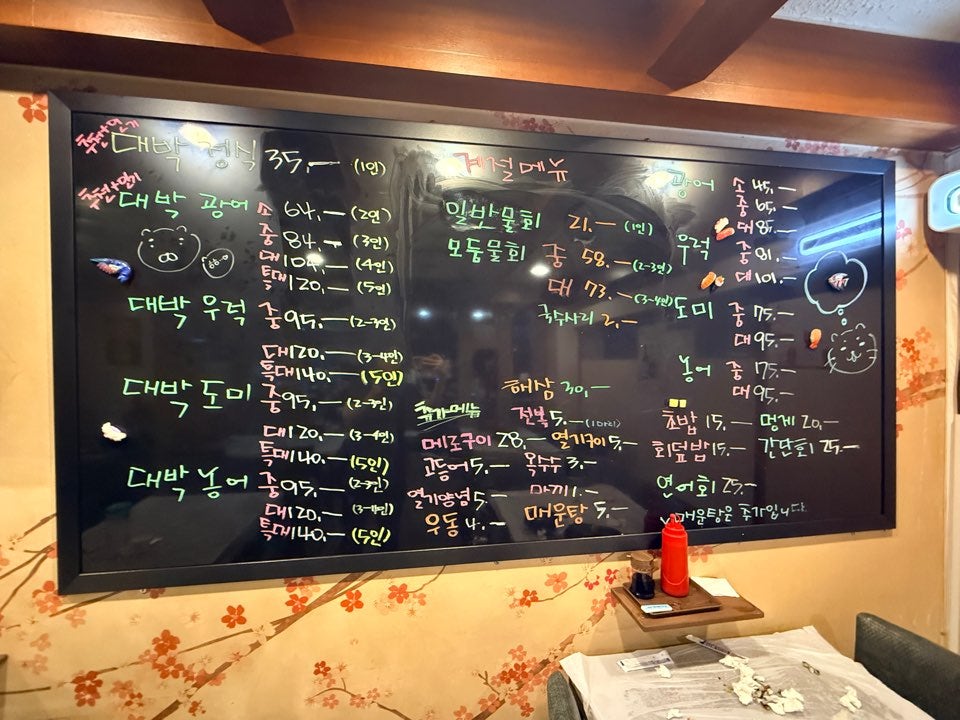 대박 정식 35,— (1인)
대박 광어 소 64,— (2인)
중 84,— (3인)
대 104,— (4인)
특대 120,— (5인)
대박 우럭 중 95,— (2-3인)
대 120,— (3-4인)
특대 140,— (5인)
대박 도미 중 95,— (2-3인)
대 120,— (3-4인)
특대 140,— (5인)
대박 농어 중 95,— (2-3인)
대 120,— (3-4인)
특대 140,— (5인)
계절메뉴
일반물회 21,— (1인)
모둠물회 중 58,— (2-3인)
대 73,— (3-4인)
국수사리 2,—
해삼 30,—
추가메뉴 전복 5,— (1마리)
메로구이 28,— 열기구이 5,—
고등어 5,— 옥수수 3,—
열기양념 5,— 마끼 1,—
우동 4,— 매운탕 5,—
광어 소 45,—
중 65,—
대 85,—
우럭 중 81,—
대 101,—
도미 중 75,—
대 95,—
농어 중 75,—
대 95,—
초밥 15,— 멍게 20,—
회덮밥 15,— 간단회 25,—
연어회 25,—
매운탕은 추가입니다